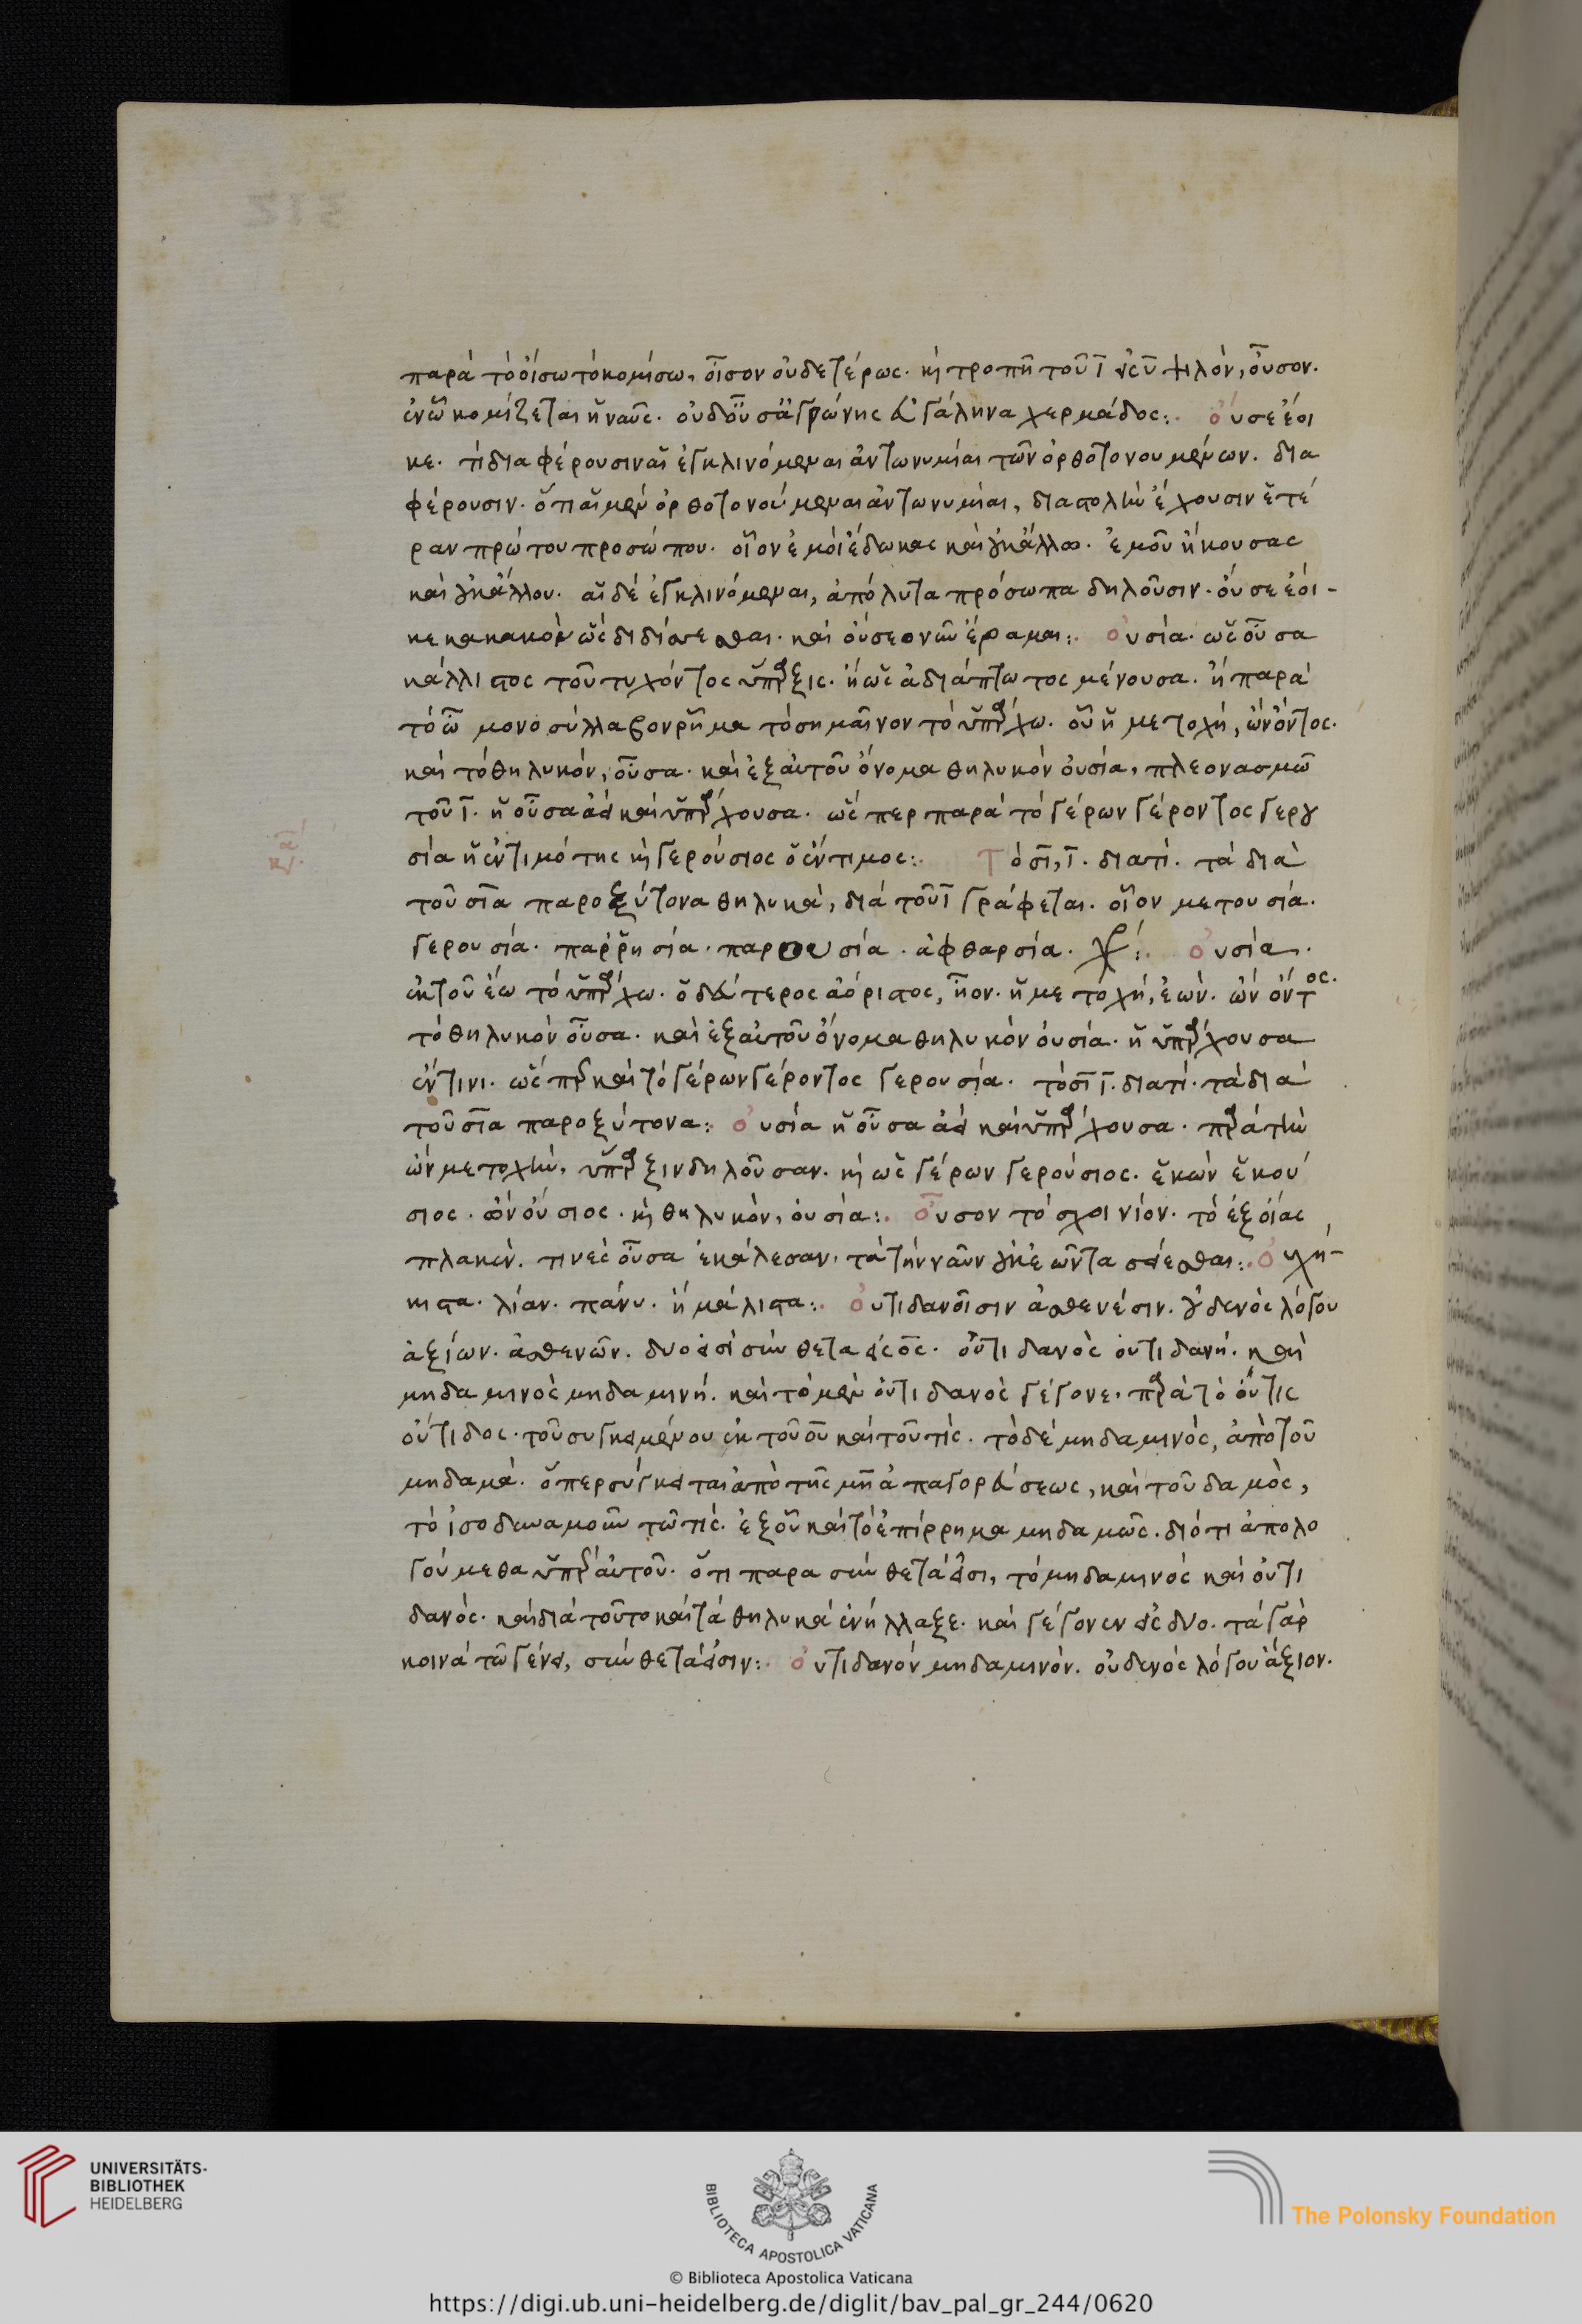 παρὰ τὸ οἴσω τὸ κομίσω, οἶσον οὐδετέρως. κ τροπῆ τοῦ ῑ εἰς ῡ ψιλὸν, οὖσον.
ἐν ὧ κομίζεται ἡ ναῦς. χερμάδος:. οὔ σε ἔοι
κε. τί διαφέρουσιν αἱ ἐγκλινόμεναι ἀντωνυμίαι τῶν ὀρθοτονουμένων. δια
φέρουσιν. ὅτι αἱ μὲν ὀρθοτονούμεναι ἀντωνυμίαι, διαστολὴν ἔχουσιν ἑτέ
ραν πρώτου προσώπου. οἷον ἐμοὶ ἔδωκας καὶ οὐκ ἄλλω. ἐμοῦ ἤκουσας
καὶ οὐκ ἄλλου. αἱ δὲ ἐγκλινόμεναι, ἀπόλυτα πρόσωπα δηλοῦσιν. οὔ σε ἔοι-
κε κακὸν ὣς δειδίσσεσθαι. καὶ οὔ σε :. οὐσία. ὡς οὖσα
κάλλιστος τοῦ τυχόντος ὕπαρξις. ἢ ὡς ἀδιάπτωτος μένουσα. ἢ παρὰ
τὸ ὦ μονοσύλλαβον ρῆμα τὸ σημαῖνον τὸ ὑπάρχω. οὗ ἡ μετοχὴ, ὢν ὄντος.
καὶ τὸ θηλυκὸν, οὖσα. καὶ ἐξ αὐτοῦ ὄνομα θηλυκὸν οὐσία, πλεονασμῶ
τοῦ ῑ. ἡ οὖσα ἀεὶ καὶ ὑπάρχουσα. ὥσπερ παρὰ τὸ γέρων γέροντος γερου
σία ἡ ἐντιμότης κ γερούσιος ὁ ἔντιμος:. Τὸ σῑ, ῑ. διατί. τὰ διὰ
τοῦ σῑα παροξύτονα θηλυκὰ, διὰ τοῦ ῑ γράφεται. οἷον μετουσία.
γερουσία. παῤῥησία. παρουσία. ἀφθαρσία. :. οὐσία.
ἐκ τοῦ ἔω τὸ ὑπάρχω. ὁ δεύτερος ἀόριστος, ἦον. ἡ μετοχὴ, ἐών. ὢν ὄντος.
τὸ θηλυκὸν οὖσα. καὶ ἐξ αὐτοῦ ὄνομα θηλυκὸν οὐσία. ἡ ὑπάρχουσα
ἔν τινι. ὥσπερ καὶ τὸ γέρων γέροντος γερουσία. τὸ σῑ ῑ. διατί. τὰ διὰ
τοῦ σῑα παροξύτονα:. οὐσία ἡ οὖσα ἀεὶ καὶ ὑπάρχουσα. παρὰ τὴν
ὢν μετοχὴν, ὕπαρξιν δηλοῦσαν. κ ὡς γέρων γερούσιος. ἑκὼν ἑκού
σιος. ὢν οὔσιος. κ θηλυκὸν, οὐσία:. οὖσον τὸ σχοινίον. τὸ ἐξ οἴας
πλακέν. τινὲς οὖσα ἐκάλεσαν. τὰ τὴν ναῦν οὐκ ἐῶντα σείεσθαι:. οὐχ ἥ-
κιστα. λίαν. πάνυ. ἢ μάλιστα:. οὐτιδανοῖσιν ἀσθενέσιν. οὐδενὸς λόγου
ἀξίων. ἀσθενῶν. δύο εἰσὶ σύνθετα εἰς ος. οὐτιδανὸς οὐτιδανή. καὶ
μηδαμινὸς μηδαμινή. καὶ τὸ μὲν οὐτιδανὸς γέγονε, παρὰ τὸ οὔτις
οὔτιδος. τοῦ συγκειμένου ἐκ τοῦ οὐ καὶ τοῦ τίς. τὸ δὲ μηδαμινὸς, ἀπὸ τοῦ
μηδαμά. ὅπερ σύγκειται ἀπὸ τῆς μὴ ἀπαγορεύσεως, καὶ τοῦ δαμὸς,
τὸ ἰσοδυναμοῦν τῶ τίς. ἐξ οὗ καὶ τὸ ἐπίρρημα μηδαμῶς. διότι ἀπολο
γούμεθα ὑπὲρ αὐτοῦ. ὅτι παρασύνθετά εἰσι, τὸ μηδαμινὸς καὶ οὐτι
δανὸς. καὶ διὰ τοῦτο καὶ τὰ θηλυκὰ ἐνήλλαξε. καὶ γέγονεν εἰς δύο. τὰ γὰρ
κοινὰ τῶ γένει, σύνθετά εἰσιν:. οὐτιδανὸν μηδαμινὸν. οὐδενὸς λόγου ἄξιον.
UNIVERSITÄTS-
BIBLIOTHEK
HEIDELBERG
BIBLIOTECA APOSTOLICA VATICANA
The Polonsky Foundation
© Biblioteca Apostolica Vaticana
https://digi.ub.uni-heidelberg.de/diglit/bav_pal_gr_244/0620